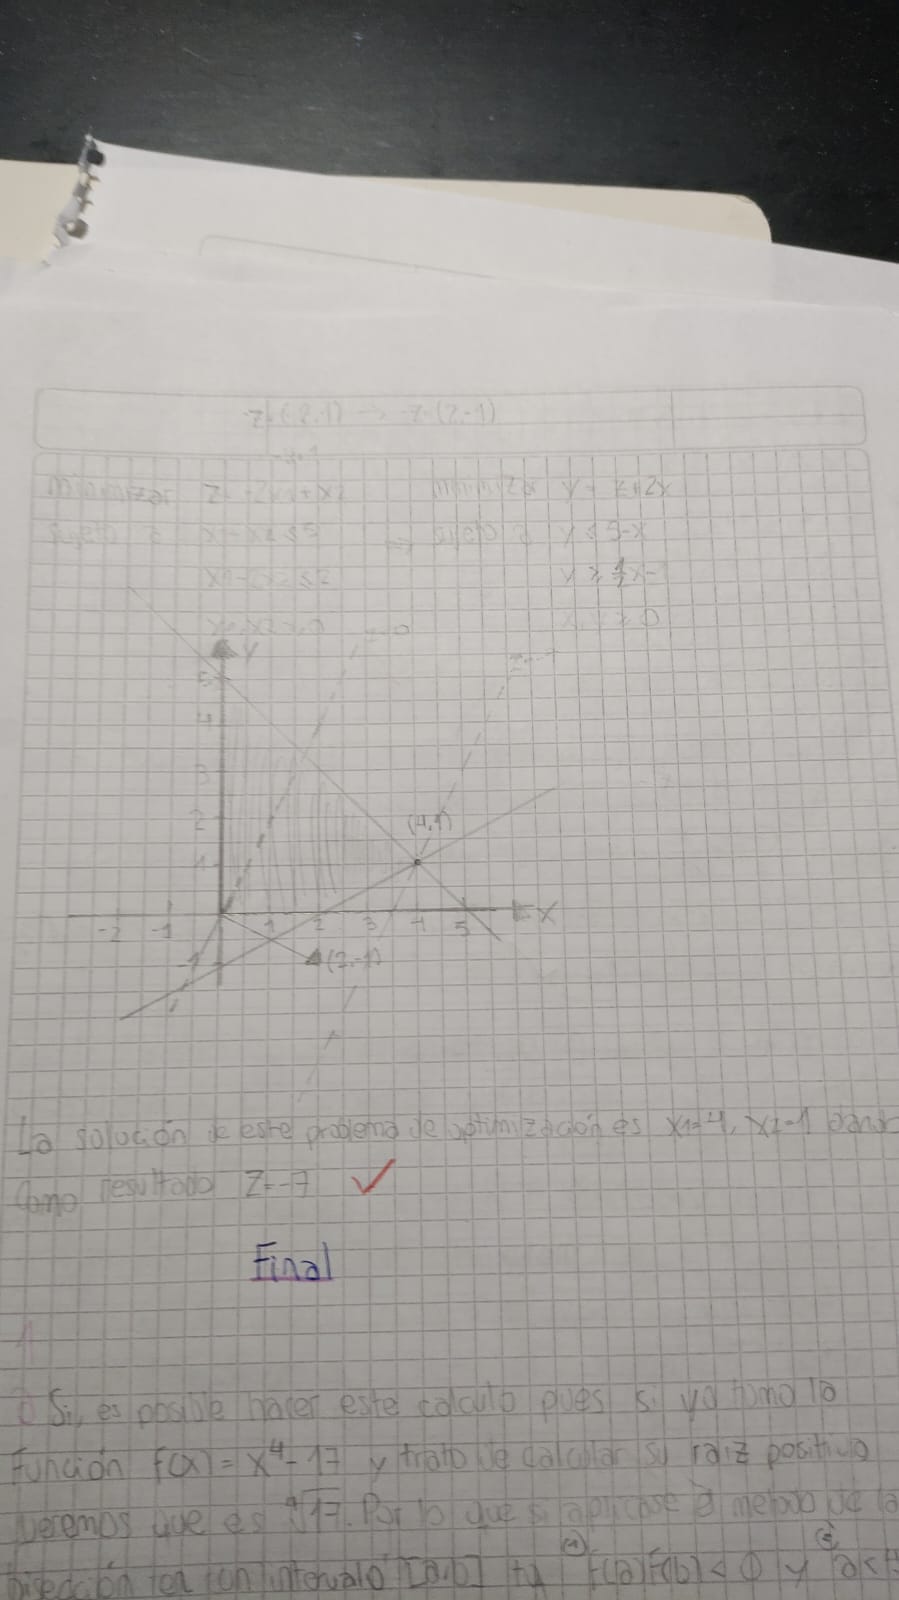 -z=(-2,1) → z=(2,-1)
minimizar z = -2x1 + x2
minimizar y = z+2x
sujeto a
sujeto a y ≤ 5-x
x1-2x2 ≤ 2
x1, x2 ≥ 0
z=0
y
z=-7
5
4
3
2
(4,1)
1
-2 -1 1 2 3 4 5 x
-1 (2,-1)
La solución de este problema de optimización es x1=4, x2=1 dando
como resultado z=-7 ✓
Final
1
Si, es posible hacer este calculo pues si yo tomo la
función f(x) = x⁴-17 y trato de calcular su raiz positiva
veremos que es ⁴√17. Por lo que si aplicase el metodo de la
bisección con un intervalo [a,b] tq (1) f(a)f(b) < 0 y (2)